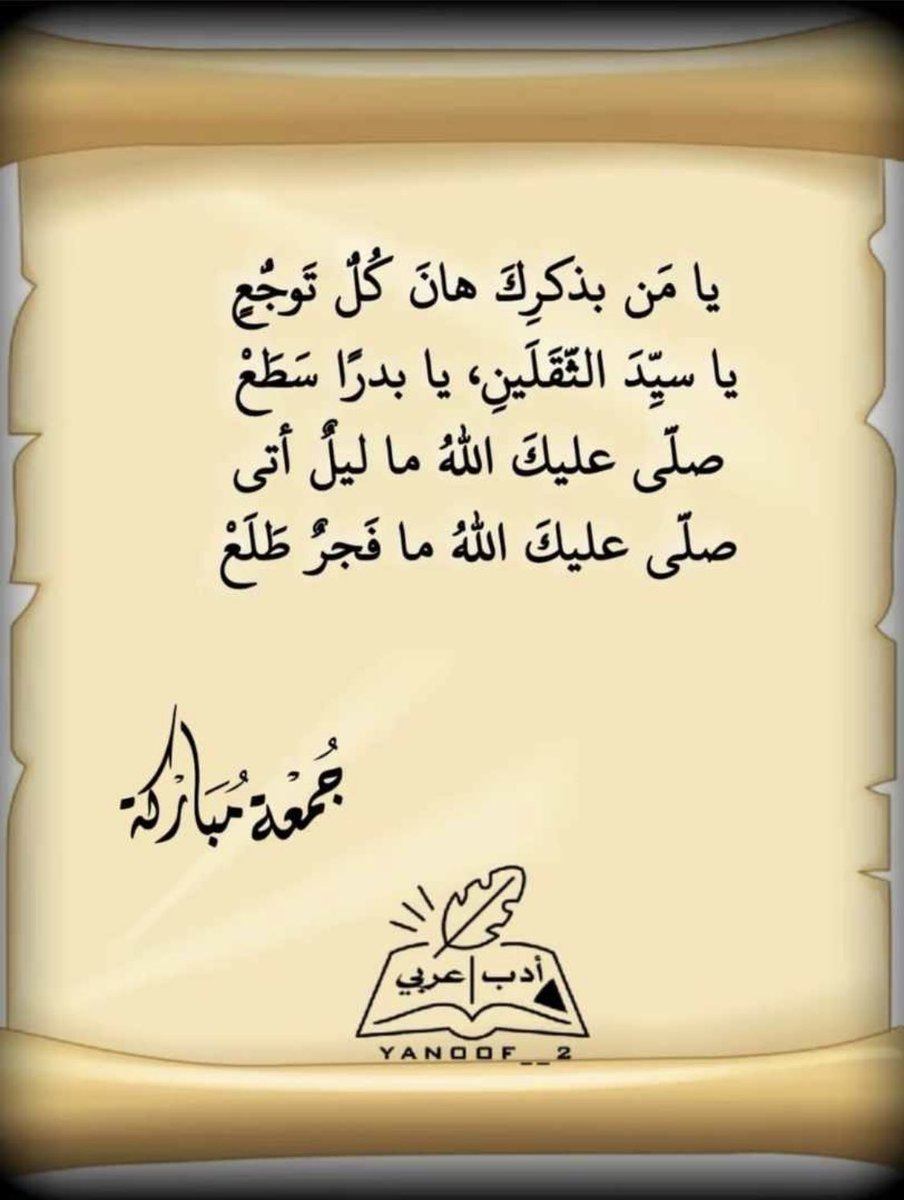 يا مَن بذكرِكَ هانَ كُلُّ تَوجُّعٍ
يا سيِّدَ الثّقَلَينِ، يا بدرًا سَطَعْ
صلّى عليكَ اللهُ ما ليلٌ أتى
صلّى عليكَ اللهُ ما فَجرٌ طَلَعْ
جُمْعة مُبَارْكة
أدب | عربي
YANOOF__2